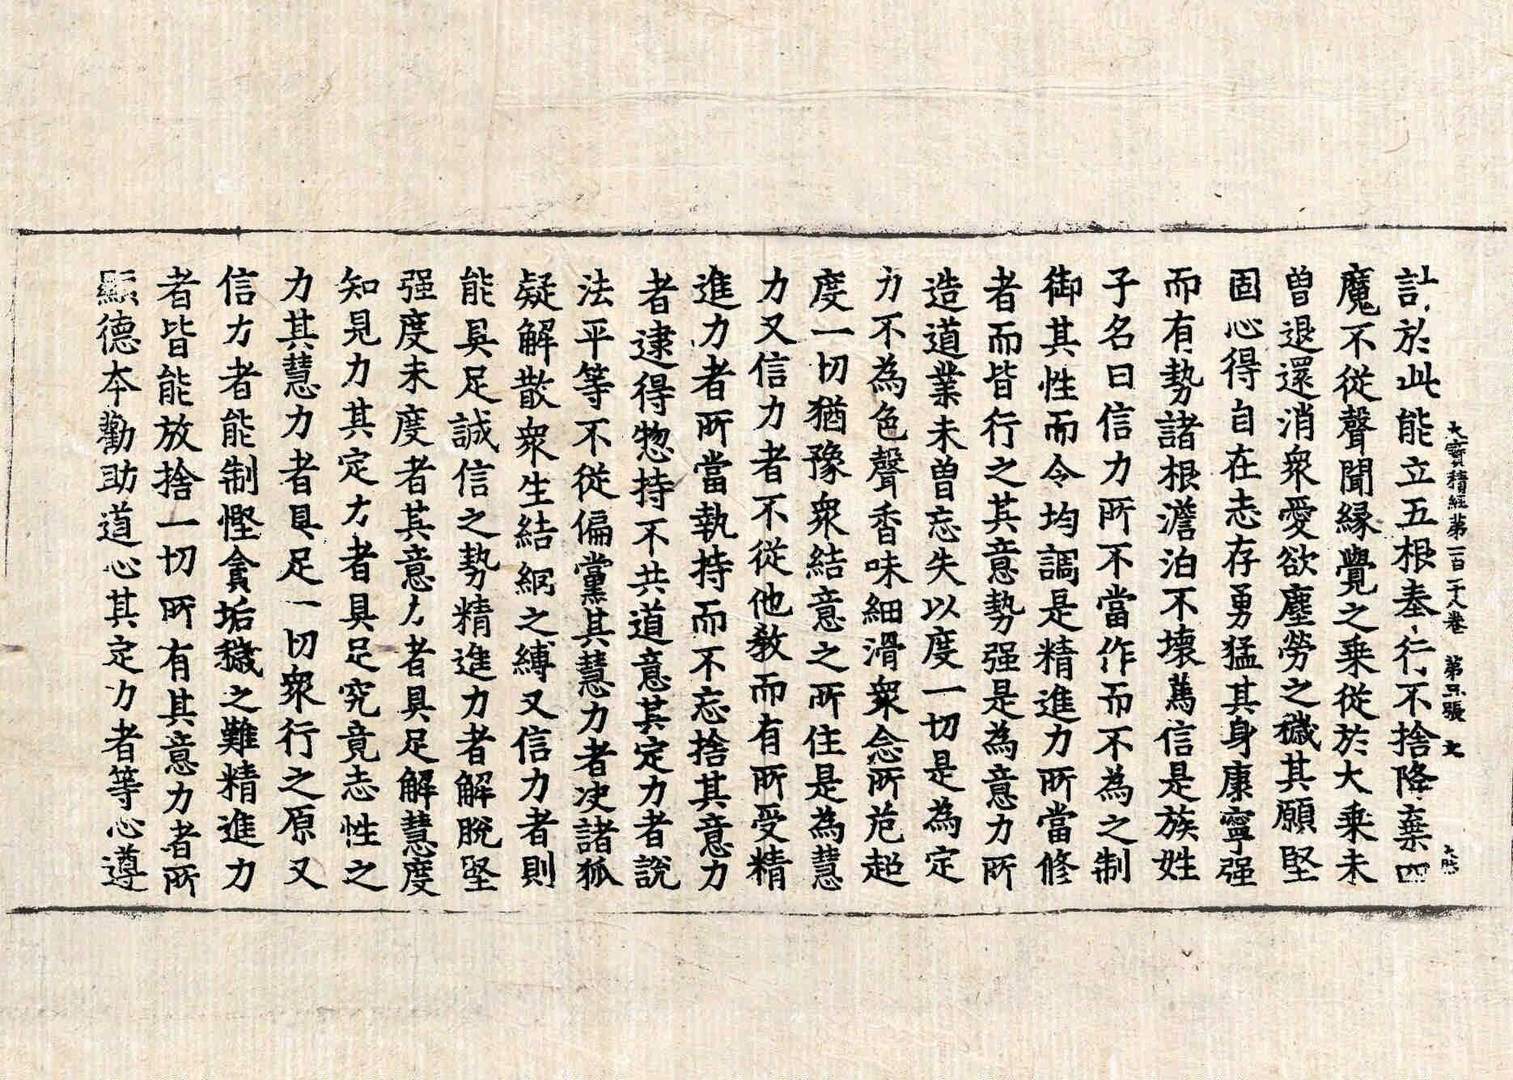 大寶積經第一百一十八卷 第五張 大
計於此能立五根奉行不捨降棄四
魔不從聲聞緣覺之乘從於大乘未
曽退還消衆愛欲塵勞之穢其願堅
固心得自在志存勇猛其身康寧强
而有勢諸根澹泊不壞篤信是族姓
子名曰信力所不當作而不為之制
御其性而令均調是精進力所當修
者而皆行之其意勢强是為意力所
造道業未曽忘失以度一切是為定
力不為色聲香味細滑衆念所危超
度一切猶豫衆結意之所住是為慧
力又信力者不從他教而有所受精
進力者所當執持而不忘捨其意力
者逮得惣持不共道意其定力者說
法平等不從偏黨其慧力者决諸狐
疑解散衆生結網之縛又信力者則
能具足誠信之勢精進力者解脫堅
强度未度者其意力者具足解慧度
知見力其定力者具足究竟志性之
力其慧力者具足一切衆行之原又
信力者能制慳貪垢穢之難精進力
者皆能放捨一切所有其意力者所
顯德本勸助道心其定力者等心遵